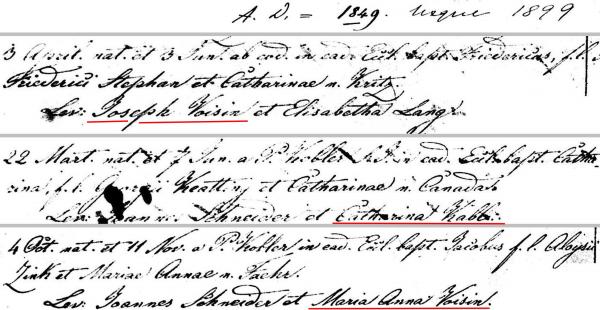 A. D. = 1849. usque 1899
3 April. nat. et 3 Jun. ab eod. in ead. Eccl. bapt. Friedericus, f. l.
Friederici Stephan et Catharinae n. Kritz
Lev: Joseph Voisin et Elisabetha Lang.
22 Mart. nat. et 7 Jun. a P. Kobler in ead. Eccl. bapt. Catha-
rina, f. l. Georgii et Catharinae n. Canada
Lev: Joannes Schneider et Catharina
4 Oct. nat. et 11 Nov. a P. Kobler in ead. Eccl. bapt. Jacobus f. l. Aloysii
Zink et Mariae Annae n. Faehr.
Lev: Joannes Schneider et Maria Anna Voisin.